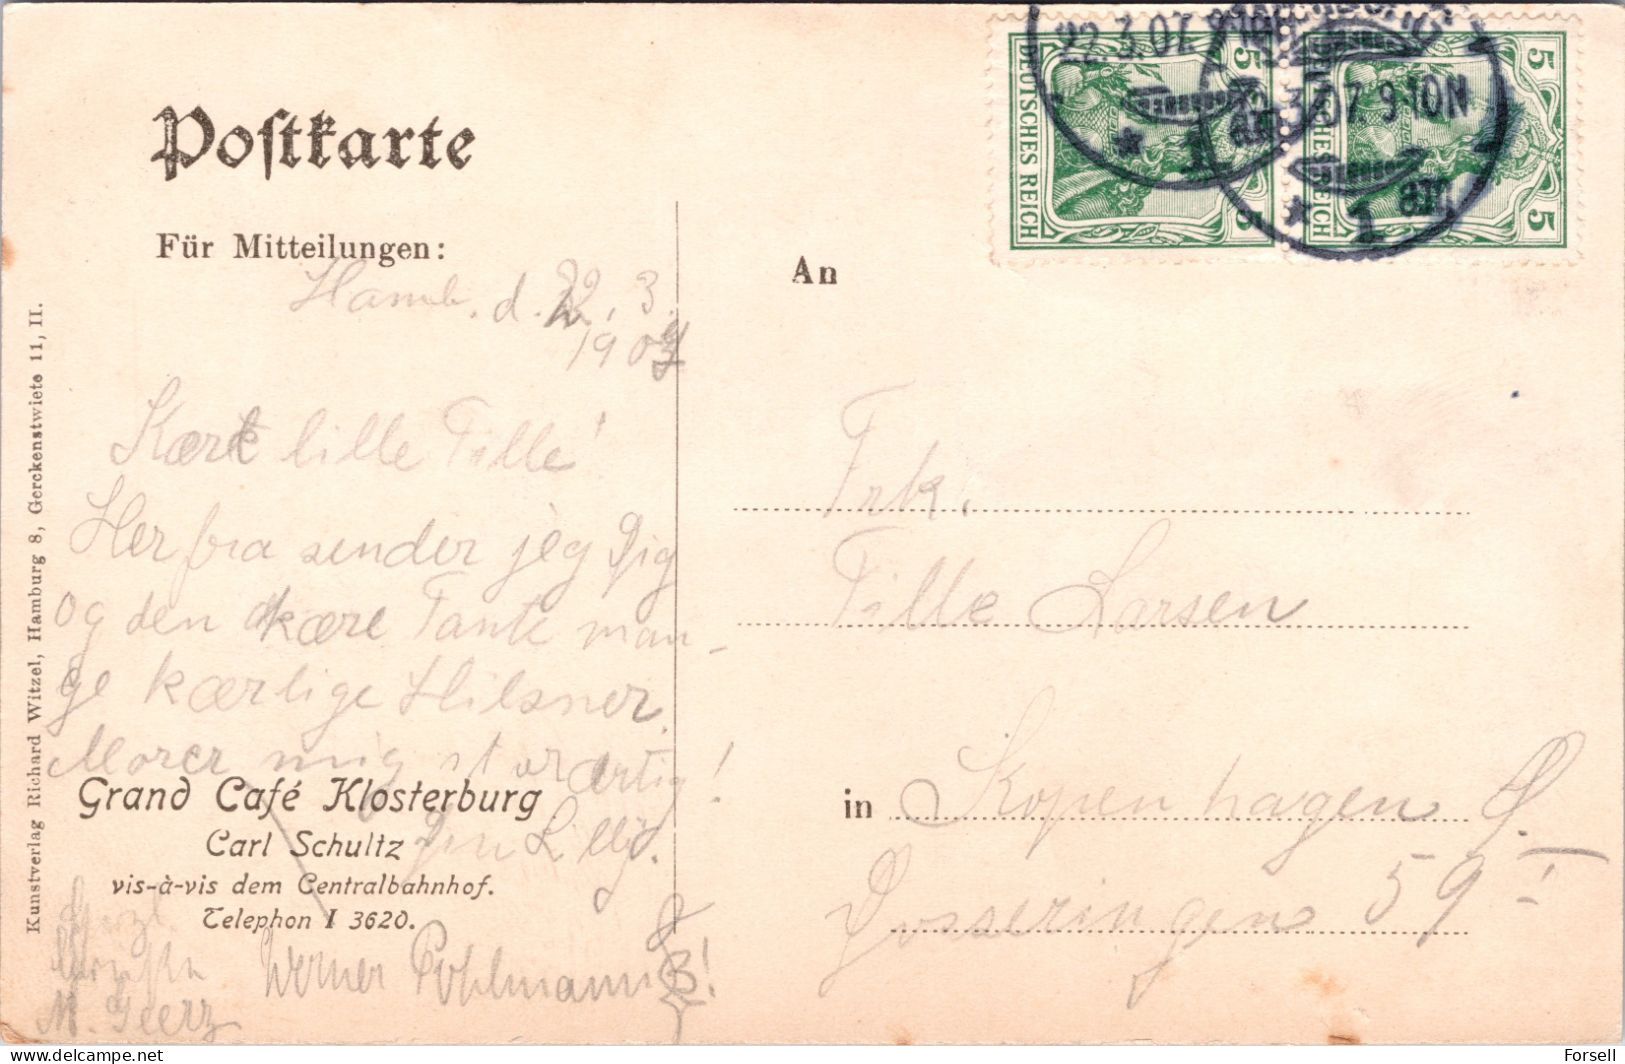 Postkarte
Für Mitteilungen:
Hamb. d. 22. 3.
1907
Kære lille Tille!
Herfra sender jeg Dig
og den kære Tante man-
ge kærlige Hilsner.
Morer mig storartig!
Grand Café Klosterburg
Carl Schultz
Din Lilly.
vis-à-vis dem Centralbahnhof.
Telephon I 3620.
Werner Pohlmann
M. Geerz
Kunstverlag Richard Witzel, Hamburg 8, Gerckenstwiete 11, II.
DEUTSCHES REICH
5
5
DEUTSCHES REICH
5
5
22.3.07.
3.07. 9-10N
* 1 an
* 1 an
An
Frk.
Tille Larsen
in Kopenhagen Ø.
Dosseringen 59 I
Forsell
delcampe.net